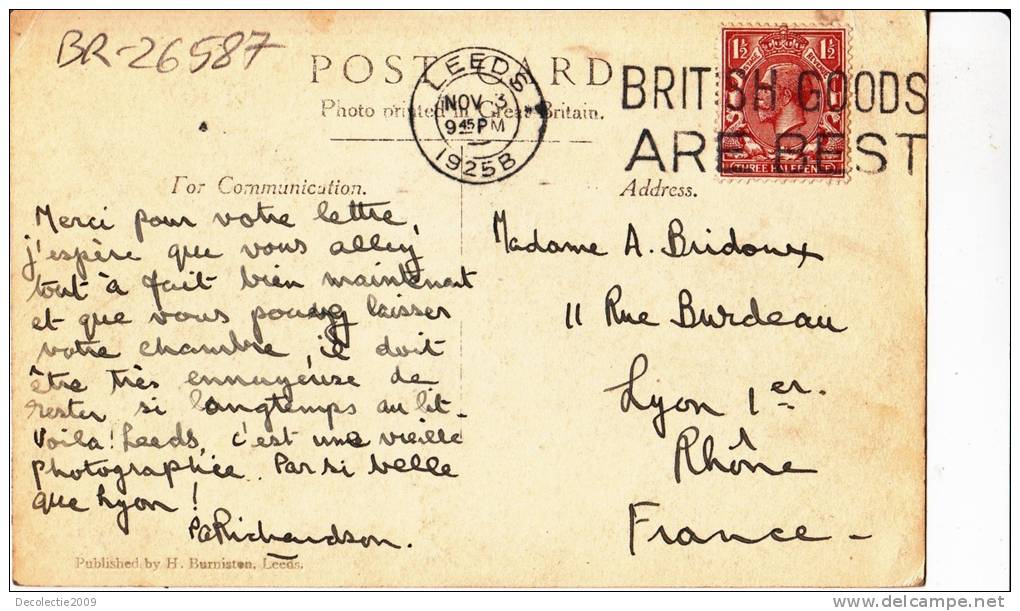 BR-26587
POST CARD
Photo printed in Great Britain.
LEEDS
NOV 3
9 45 PM
1925 B
BRITISH GOODS
ARE BEST
1½ 1½
POSTAGE REVENUE
(THREE HALFPENCE)
For Communication.
Address.
Merci pour votre lettre,
j'espère que vous allez
tout à fait bien maintenant
et que vous pouvez laisser
votre chambre, il doit
être très ennuyeuse de
rester si longtemps au lit -
Voila! Leeds, c'est une vieille
photographie. Pas si belle
que Lyon!
Richardson.
Madame A. Bridoux
11 Rue Burdeau
Lyon 1er.
Rhône
France -
Published by H. Burniston, Leeds.
Decolectie2009
http://www.delcampe.net